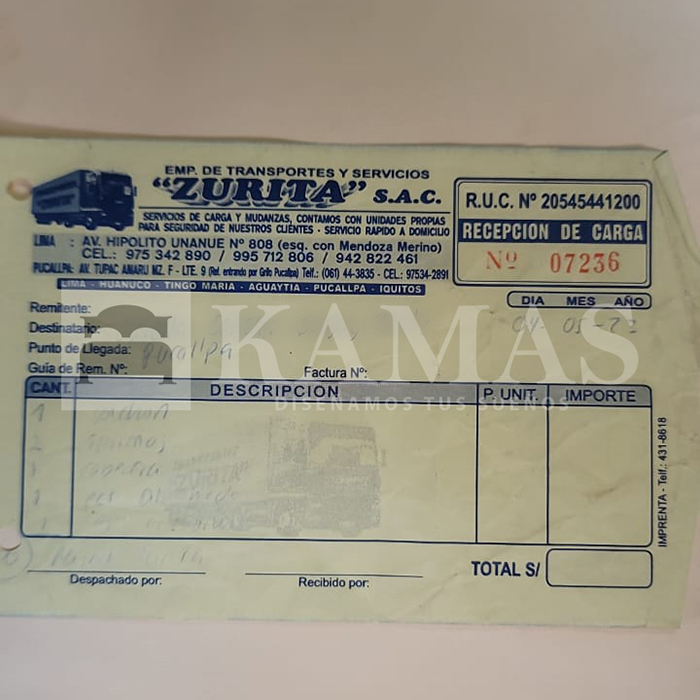 EMP. DE TRANSPORTES Y SERVICIOS
"ZURITA" S.A.C.
SERVICIOS DE CARGA Y MUDANZAS, CONTAMOS CON UNIDADES PROPIAS
PARA SEGURIDAD DE NUESTROS CLIENTES - SERVICIO RAPIDO A DOMICILIO
LIMA : AV. HIPOLITO UNANUE Nº 808 (esq. con Mendoza Merino)
CEL.: 975 342 890 / 995 712 806 / 942 822 461
PUCALLPA: AV. TUPAC AMARU MZ. F - LTE. 9 (Ref. entrando por Grifo Pucallpa) Telf.: (061) 44-3835 - CEL.: 97534-2891
LIMA - HUANUCO - TINGO MARIA - AGUAYTIA - PUCALLPA - IQUITOS
R.U.C. Nº 20545441200
RECEPCION DE CARGA
Nº 07236
DIA MES AÑO
Remitente:
Destinatario:
Punto de Llegada: Pucallpa
Guía de Rem. Nº: Factura Nº:
KAMAS
DISEÑAMOS TUS SUEÑOS
CANT. DESCRIPCION P. UNIT. IMPORTE
1
2
1
1
ZURITA
Despachado por:
Recibido por:
TOTAL S/
IMPRENTA - Telf.: 431-8618